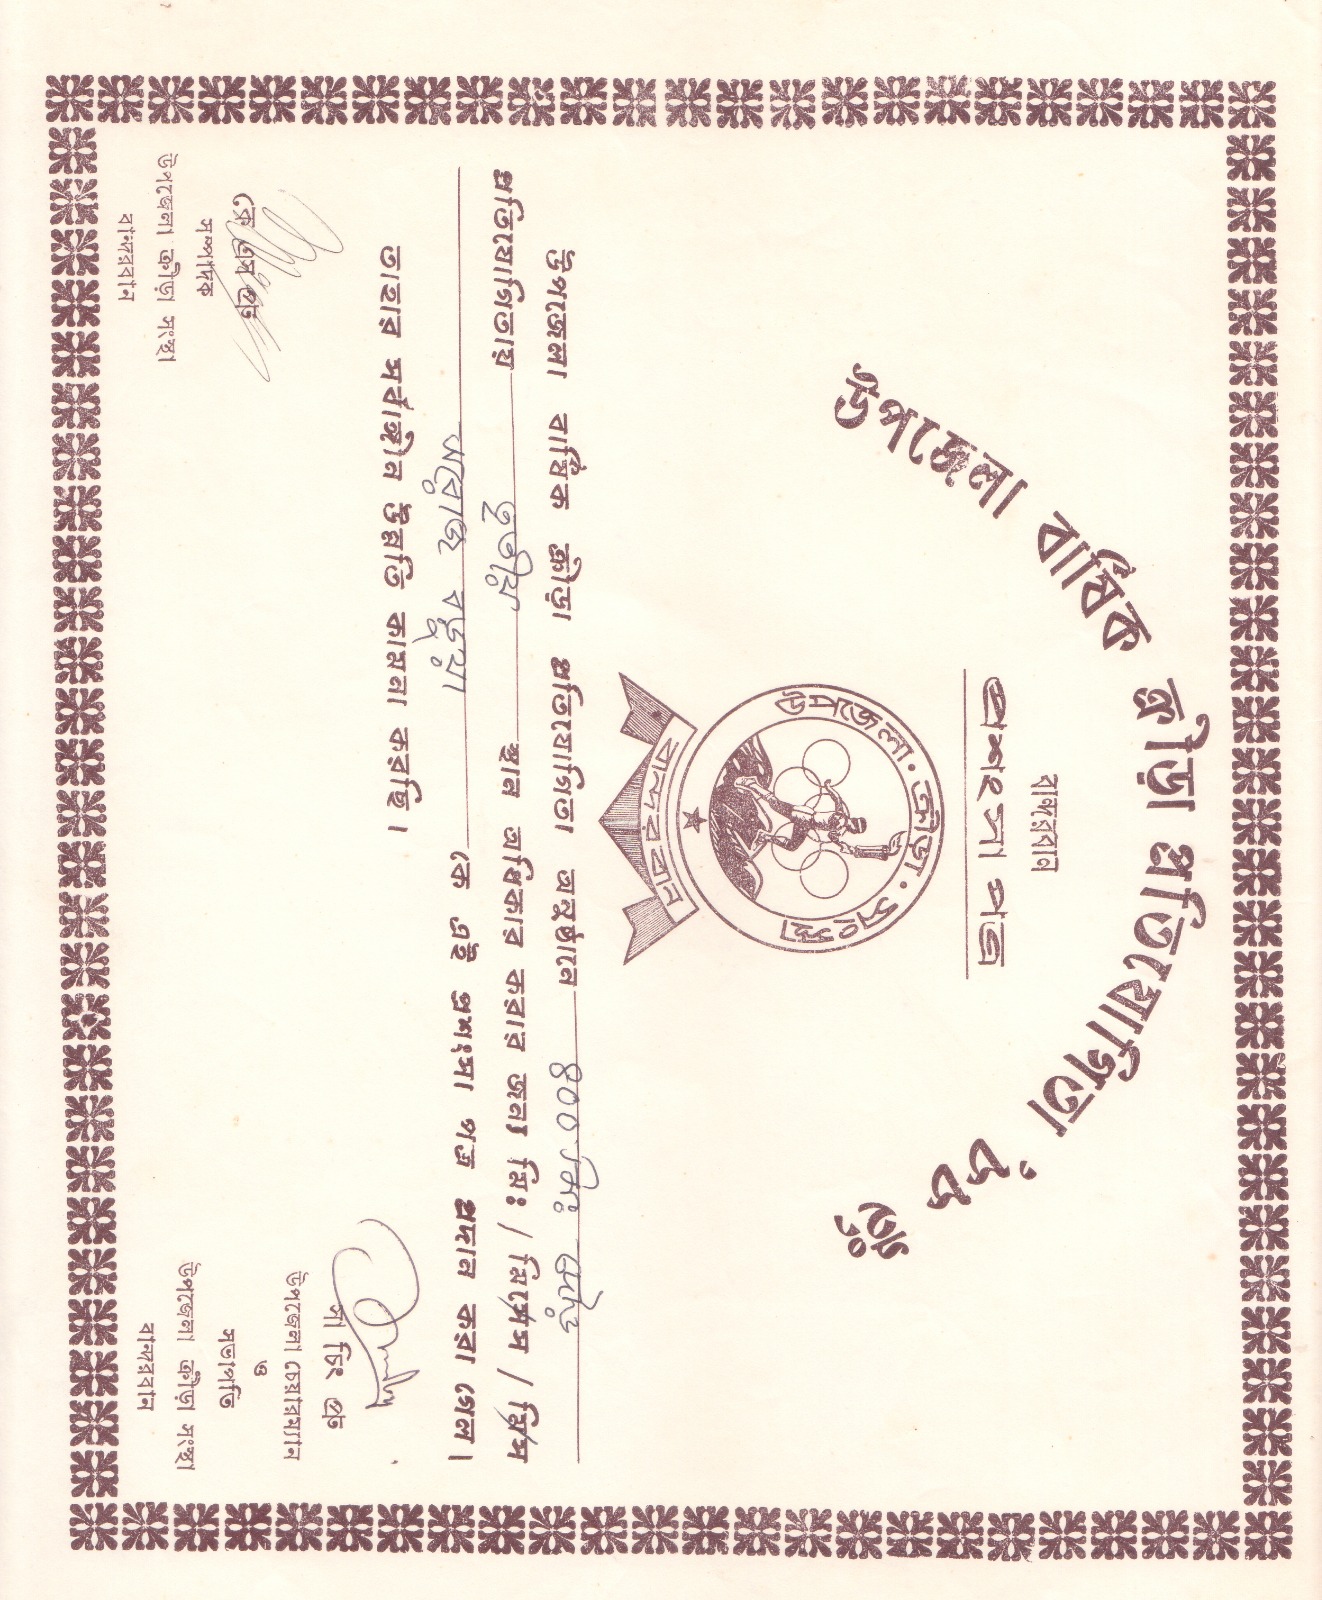 উপজেলা বার্ষিক ক্রীড়া প্রতিযোগিতা '৮৮ ইং
বান্দরবান
প্রশংসা পত্র
উপজেলা · ক্রীড়া · সংস্থা
বান্দরবান
উপজেলা বার্ষিক ক্রীড়া প্রতিযোগিতা অনুষ্ঠানে ৪০০ মিঃ দৌড়
প্রতিযোগিতায় তৃতীয় স্থান অধিকার করার জন্য মিঃ / মিসেস / মিস
সরোজ বড়ুয়া কে এই প্রশংসা পত্র প্রদান করা গেল।
তাহার সর্বাঙ্গীন উন্নতি কামনা করছি।
সা চিং প্রু
উপজেলা চেয়ারম্যান
ও
সভাপতি
উপজেলা ক্রীড়া সংস্থা
বান্দরবান
কে এস প্রু
সম্পাদক
উপজেলা ক্রীড়া সংস্থা
বান্দরবান